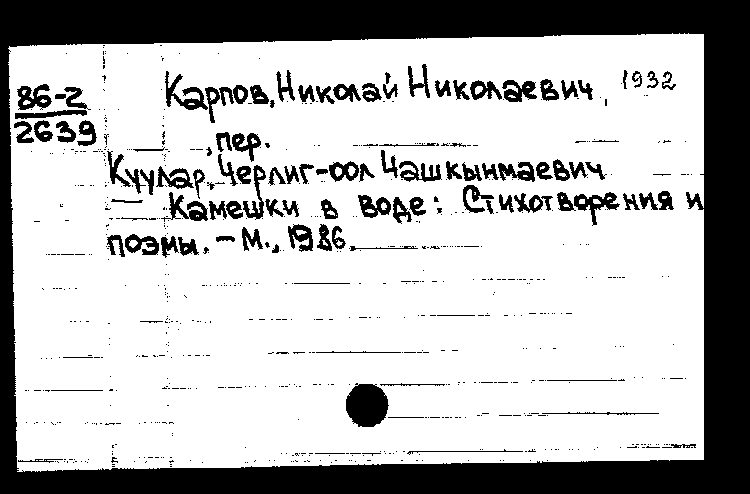 86-2
2639
Карпов, Николай Николаевич, 1932
, пер.
Куулар, Черлиг-оол Чашкынмаевич
Камешки в воде: Стихотворения и
поэмы. — М., 1986.